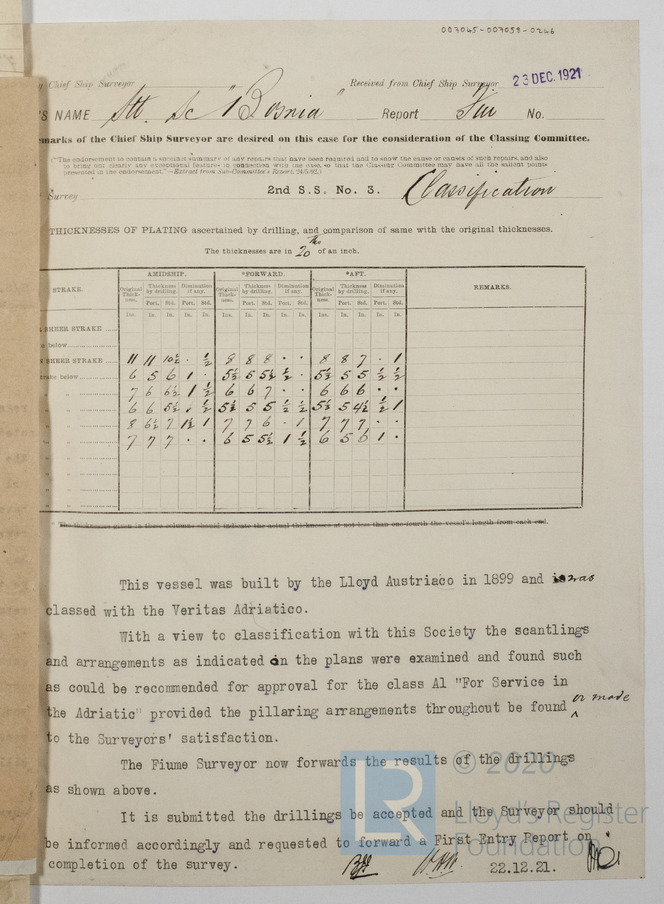 007045-007058-0246
Chief Ship Surveyor Received from Chief Ship Surveyor 23 DEC. 1921
'S NAME Stl. Sc "Bosnia" Report No.
marks of the Chief Ship Surveyor are desired on this case for the consideration of the Classing Committee.
("The endorsement to contain a succinct summary of any repairs that have been required and to show the cause or causes of such repairs, and also
to bring out clearly any exceptional features in connection with the case, so that the Classing Committee may have all the salient points
presented in the endorsement."—Extract from Sub-Committee's Report,
Survey 2nd S.S. No. 3. Classification
THICKNESSES OF PLATING ascertained by drilling, and comparison of same with the original thicknesses.
The thicknesses are in 20ths of an inch.
STRAKE. AMIDSHIP. *FORWARD. *AFT. REMARKS.
Original Thickness. Thickness by drilling. Diminution if any. Original Thickness. Thickness by drilling. Diminution if any. Original Thickness. Thickness by drilling. Diminution if any.
Port. Std. Port. Std. Port. Std. Port. Std. Port. Std. Port. Std.
Ins. In. In. In. In. Ins. In. In. In. In. Ins. In. In. In. In.
SHEER STRAKE
below
SHEER STRAKE 11 11 10½ · ½ 8 8 8 · · 8 8 7 · 1
strake below 6 5 6 1 · 5½ 5 5½ ½ · 5½ 5 5 ½ ½
" " 7 6 6½ 1 ½ 6 6 7 · · 6 6 6 · ·
" " 6 6 5½ · ½ 5½ 5 5 ½ ½ 5½ 5 4½ ½ 1
" " 8 6½ 7 1½ 1 7 7 6 · 1 7 7 7 · ·
" " 7 7 7 · · 6 5 5½ 1 ½ 6 5 6 1 ·
* The thickness given in these columns should indicate the actual thicknesses at not less than one-fourth the vessel's length from each end.
This vessel was built by the Lloyd Austriaco in 1899 and is was
classed with the Veritas Adriatico.
With a view to classification with this Society the scantlings
and arrangements as indicated on the plans were examined and found such
as could be recommended for approval for the class A1 "For Service in
the Adriatic" provided the pillaring arrangements throughout be found ^ or made
to the Surveyors' satisfaction.
The Fiume Surveyor now forwards the results of the drillings
as shown above.
It is submitted the drillings be accepted and the Surveyor should
be informed accordingly and requested to forward a First Entry Report on
completion of the survey. 22.12.21.
LR © 2020
Lloyd's Register
Foundation